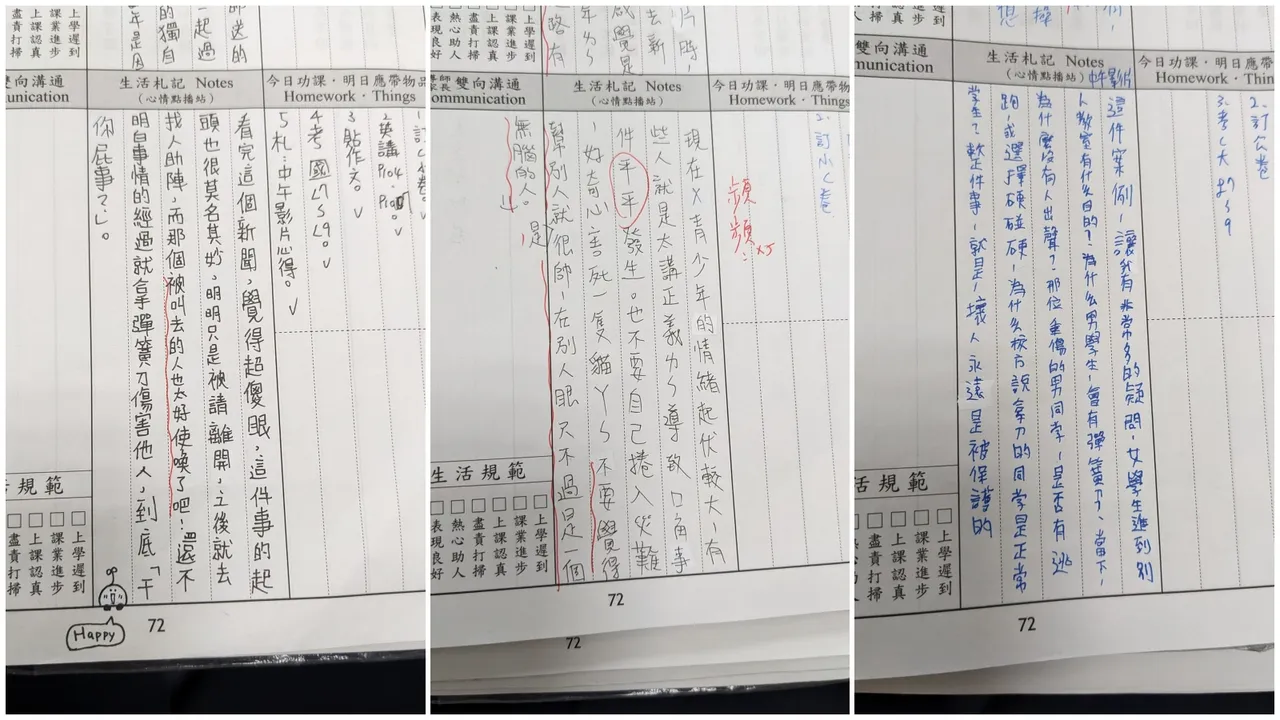 盡責打掃
上課認真
課業進步
上學遲到
雙向溝通
生活札記 Notes
(心情點播站)
今日功課・明日應帶物品
Homework・Things
2.英講
3.貼作文。✓
4.考國
5.札:中午影片心得。✓
看完這個新聞,覺得超傻眼,這件事的起
頭也很莫名其妙,明明只是被請離開,立後就去
找人助陣,而那個被叫去的人也太好使喚了吧!還不
明白事情的經過就拿彈簧刀傷害他人,到底「干
你屁事?」。
生活規範
盡責打掃
上課認真
課業進步
上學遲到
Happy
72
表現良好
熱心助人
盡責打掃
上課認真
課業進步
上學遲到
雙向溝通
ommunication
生活札記 Notes
(心情點播站)
今日功課・明日應帶物
Homework・Things
2.訂小ㄑ卷
頻頻:x5
現在ㄨ青少年的情緒起伏較大,有
些人就是太講正義力ㄅ導致口角事
件平平發生。也不要自己捲入災難
,好奇心害死一隻貓ㄚㄅ不要覺得
幫別人就很帥,在別人眼只不過是一個
無腦的人。
是
生活規範
表現良好
熱心助人
盡責打掃
上課認真
課業進步
上學遲到
72
72
雙向溝通
munication
生活札記 Notes
(心情點播站)
中午影片
今日功課・明日應
Homework・Thin
2.訂ㄍ卷
這件案例,讓我有非常多的疑問,女學生進到別
人教室有什么目的?為什么男學生,會有彈簧刀、當下,
為什麼沒有人出聲?那位重傷的男同学,是否有逃
跑,或選擇硬碰硬,為什么校方說拿刀的同学是正常
学生?整件事,就是,壞人永遠是被保護的
生活規範
盡責打掃
上課認真
課業進步
上學遲到
72